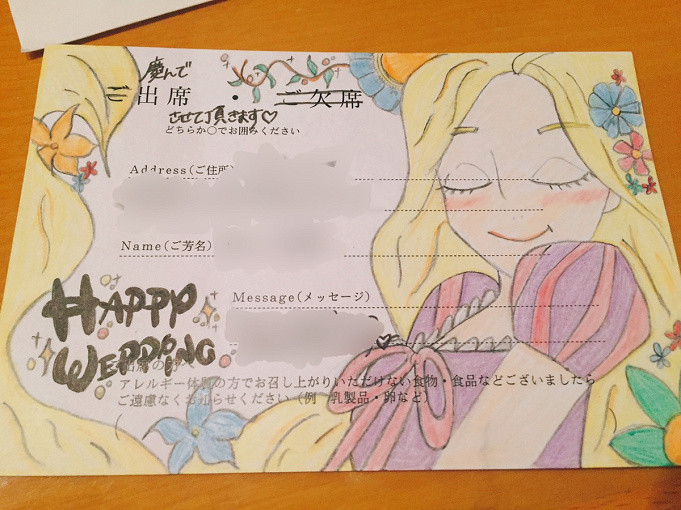 慶んで
ご出席 ・ ご欠席
させて頂きます♡
どちらか〇でお囲みください
Address(ご住所)
Name(ご芳名)
Message(メッセージ)
HAPPY
WEDDING
出席の方へ
アレルギー体質の方でお召し上がりいただけない食物・食品などございましたら
ご遠慮なくお知らせください（例 乳製品・卵など）